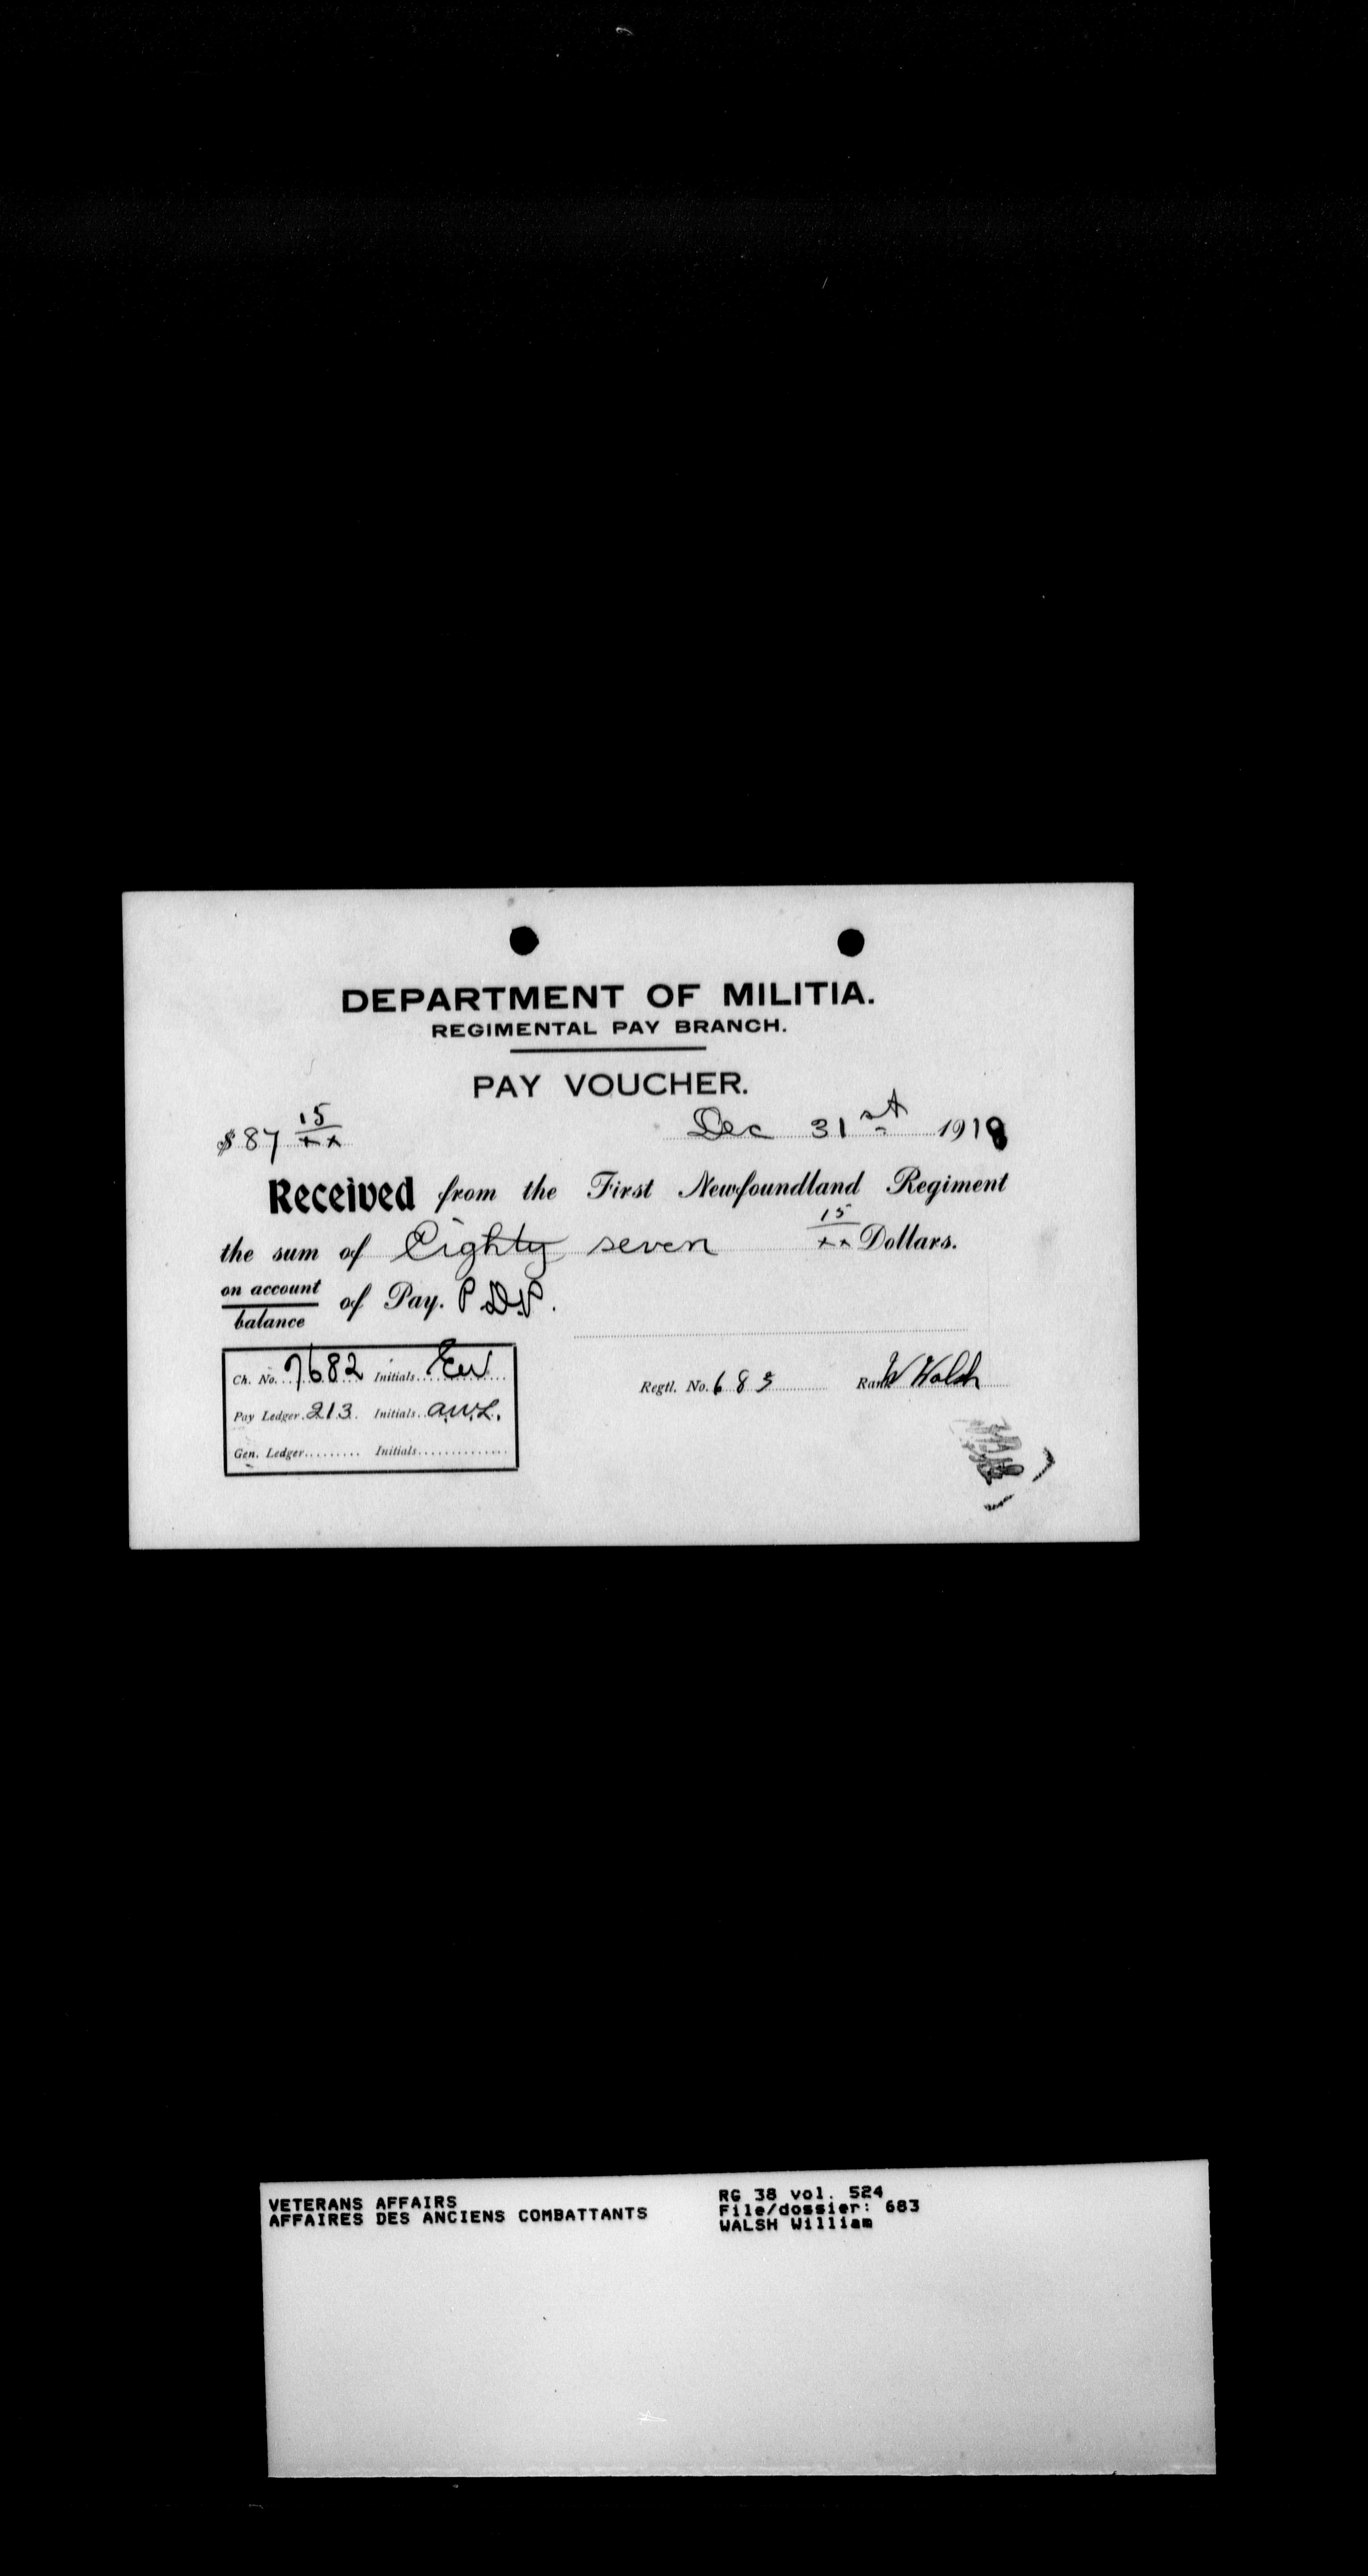 DEPARTMENT OF MILITIA.
REGIMENTAL PAY BRANCH.
PAY VOUCHER.
$ 87 15/xx Dec 31st 1918
Received from the First Newfoundland Regiment
the sum of Eighty seven 15/xx Dollars.
on account
balance of Pay. P.D.P.
Ch. No. 7682 Initials EW
Pay Ledger 213 Initials A.W.L.
Gen. Ledger Initials
Regtl. No. 683 Rank W Walsh
VETERANS AFFAIRS
AFFAIRES DES ANCIENS COMBATTANTS
RG 38 vol. 524
File/dossier: 683
WALSH William